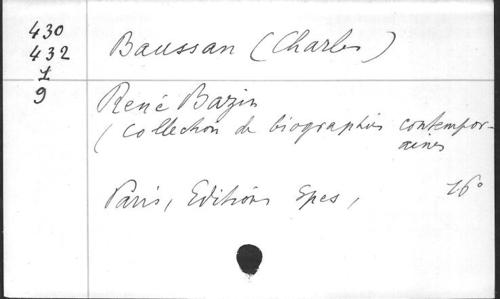 430
432
1
9
Baussan (Charles)
René Bazin
(Collection de biographies contempor-
aines
Paris, Editions Spes,
16°